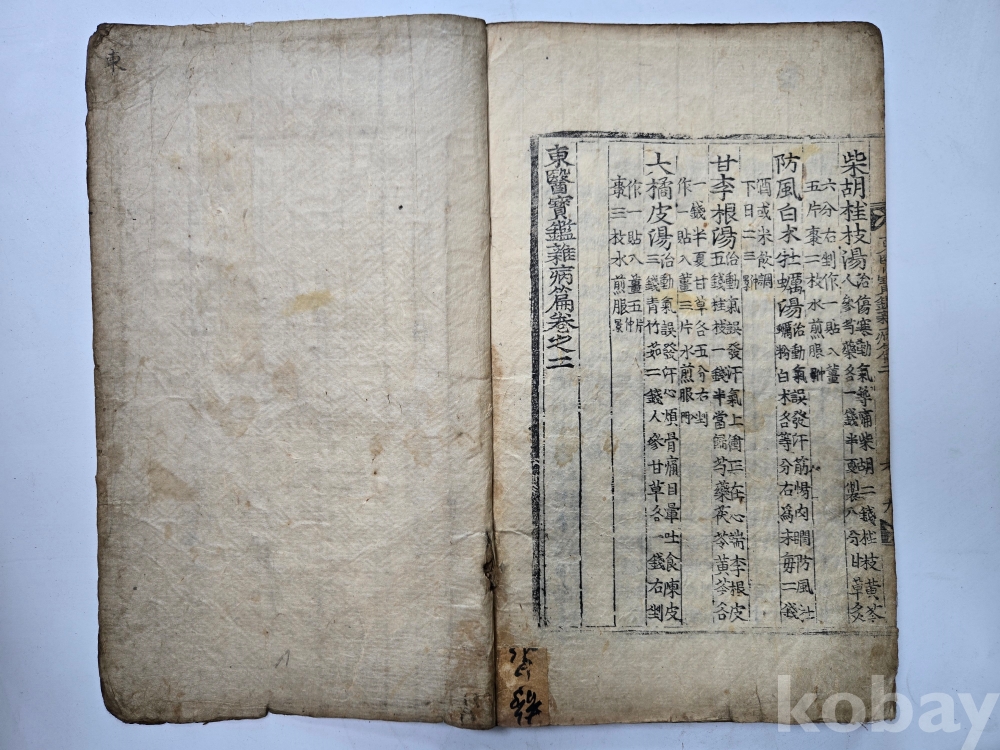 柴胡桂枝湯
治傷寒動氣築痛柴胡二錢桂枝黃芩
人參芍藥各一錢半夏製八分甘草灸
六分右剉作一貼入薑
五片棗二枚水煎服
防風白朮牡蠣湯
治動氣誤發汗筋惕肉瞤防風牡
蠣粉白朮各等分右爲末每二錢
酒或米飮調
下日二三
甘李根湯
治動氣誤發汗氣上衝正在心端李根皮
五錢桂枝一錢半當歸芍藥茯苓黃芩各
一錢半夏甘草各五分右剉
作一貼入薑三片水煎服
大橘皮湯
治動氣誤發汗心煩骨痛目暈吐食陳皮
三錢靑竹茹二錢人參甘草各一錢右剉
作一貼入薑五片
棗三枚水煎服
東醫寶鑑雜病篇卷之二
東
kobay